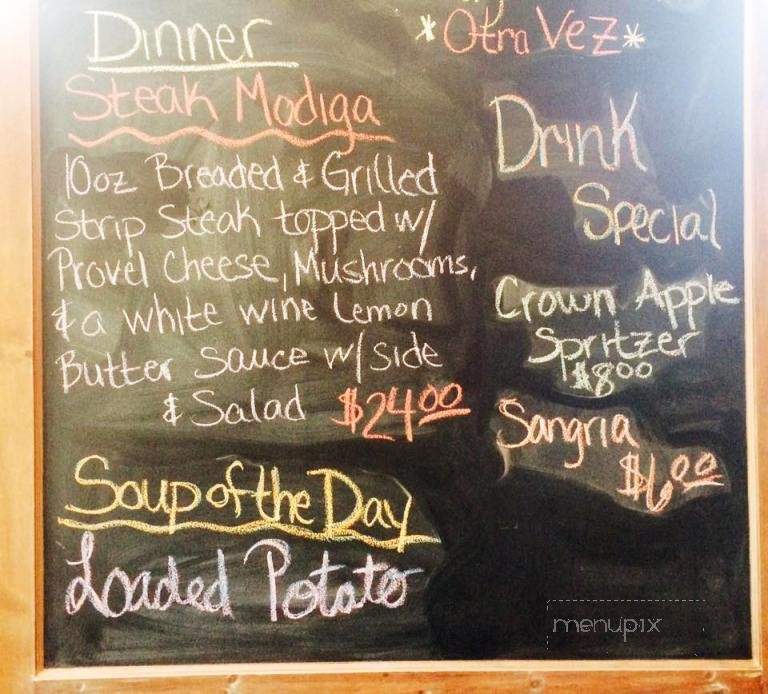 Dinner
Steak Modiga
10oz Breaded & Grilled
Strip Steak topped w/
Provel Cheese, Mushrooms,
& a white wine Lemon
Butter Sauce w/ side
& Salad $24.00
Soup of the Day
Loaded Potato
*Otra Vez*
Drink
Special
Crown Apple
Spritzer
$8.00
Sangria
$6.00
menupix